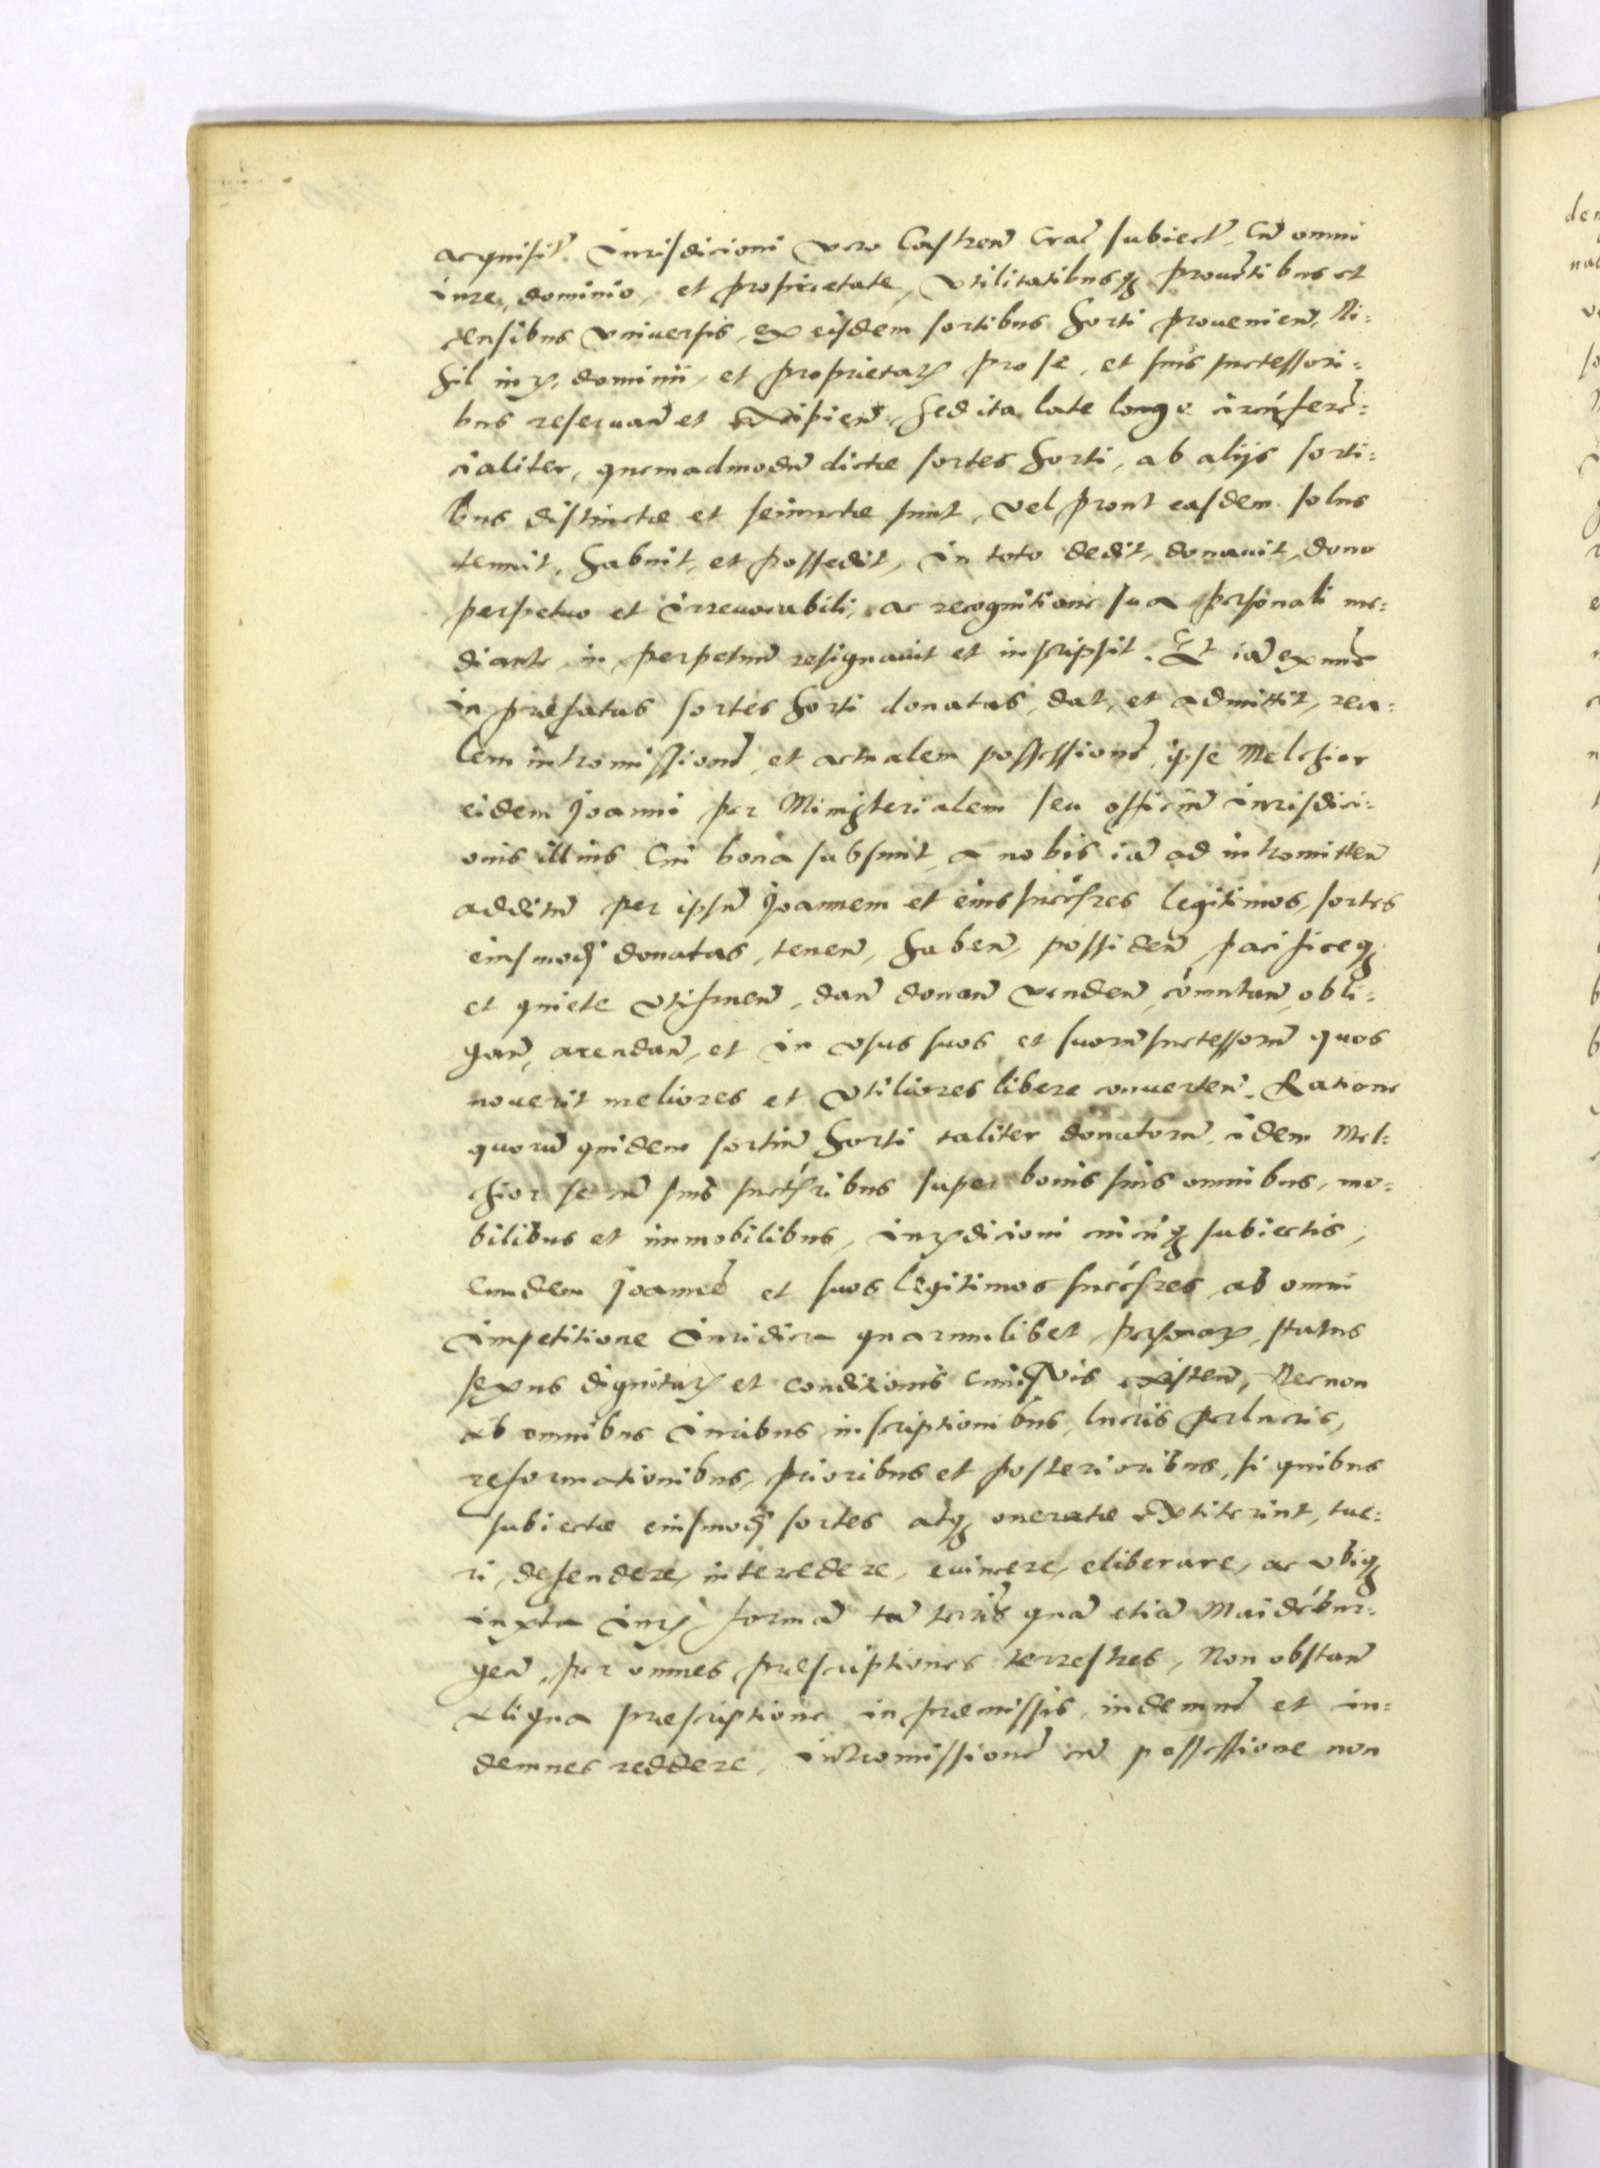 acquisit̃. Iurisdicioni vero Castren̄ Crac̄ subiect̃, Cū omni
iure, dominio, et proprietate, vtilitatibusq; prouẽtibus et
censibus vniuersis, ex eisdem sortibus horti prouenien̄, Ni=
hil iur̃, dominii, et proprietat̃ pro se, et suis successori=
bus reseruan̄ et excipien̄. Sed ita late longe circũferē=
cialiter, quemadmodū dictæ sortes horti, ab alijs sorti=
bus distinctæ et seiunctæ sunt, vel prout easdem solus
tenuit, habuit, et possedit, in toto dedit, donauit, dono
perpetuo et irreuocabili, ac recognitione sua personali me=
diante in perpetuū resignauit et inscripsit. Et iā ex nūc
in præfatas sortes horti donatas, dat, et admittit, rea=
lem intromissionē, et actualem possessionē, ipse Melchior
eidem Joanni per Ministerialem seu officiū iurisdici=
onis illius Cui bona subsunt, a nobis iā ad intromitten̄
additū per ipsū Joannem et eius succēsres legitimos, sortes
eiusmodi donatas, tenen̄, haben̄, possiden̄, pacificeq;
et quiete vtifruen̄, dan̄ donan̄ venden̄, cōmutan̄, obli=
gan̄, arendan̄, et in vsus suos et suorū successorū quos
nouerit meliores et vtiliores libere conuerten̄. Ratione
quorū quidem sortiū horti taliter donatorū, idem Mel=
chior se cū suis succēsribus super bonis suis omnibus, mo=
bilibus et immobilibus, iur̃dicioni cuicūq; subiectis,
eundem Joannē et suos legitimos succēsres ab omni
impetitione iuridica quarumlibet personar̃, status
sexus dignitat̃ et conditionis cuiusvis existen̄, Necnon
ab omnibus iuribus inscriptionibus, lucris perlucris,
reformationibus, prioribus et posterioribus, si quibus
subiectæ eiusmodi sortes atq; oneratæ extiterint, tue=
ri, defendere, intercedere, euincere, eliberare, ac vbiq;
iuxta iur̃ formā tā terrīs quā etiā Maidēbur=
gen̄, per omnes præscriptiones terrestres, Non obstan̄
aliqua præscriptione in præmissis, indemnē et in=
demnes reddere, intromissionē cū possessione non